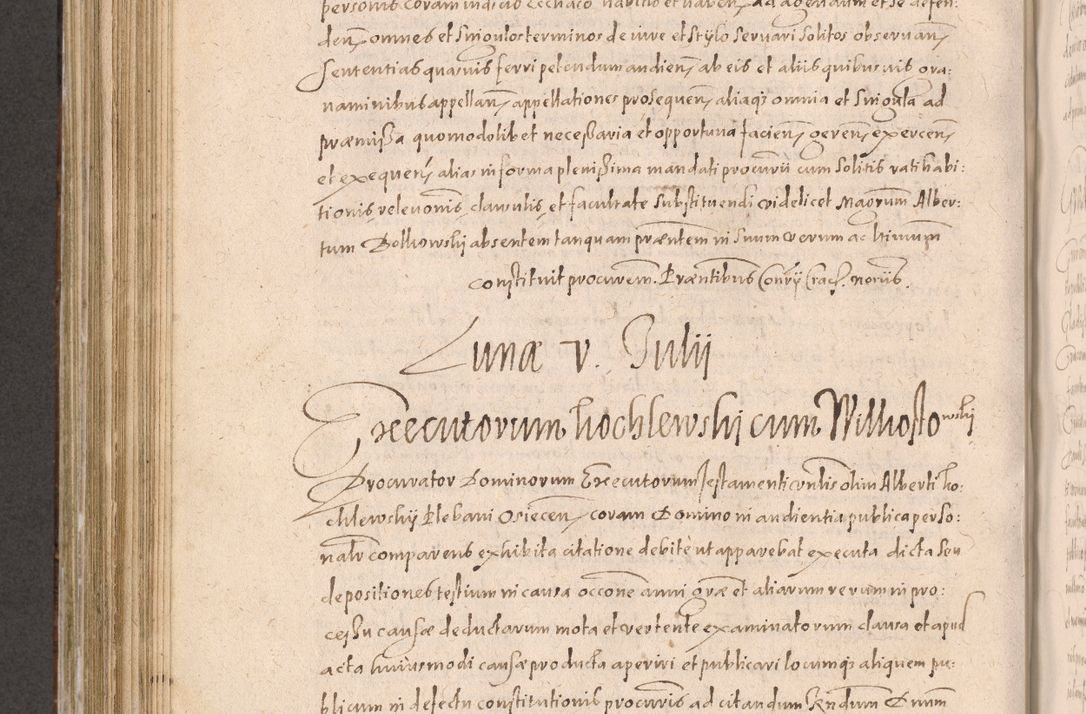 personis coram iudicio ad agendum et se defen:
den omnes et singulos terminos de iure et stylo servari solitos observan
sententias quasvis ferri petendum audien ab eis et aliis quibusvis gra:
vaminibus appellan appellationes prosequen aliaq omnia et singula ad
præmissa quomodolibet necessaria et opportuna facien geren exercen
et exequen alias in forma plenissima mandati procurii cum solitis ratihabi:
tionis relevonis clausulis et facultate substituendi videlicet Magrum Alber:
tum absentem tanquam præntem in suum verum ac ltimum
constituit procurem. Præntibus Crac. noriis.
Lunæ v. Julii
Executorum Kochlewskij cum Wilkostowskij
Procurator Dominorum Executorum Testamenti vnlis olim Alberti Ko:
chlewskij Plebani Osiecen coram Domino in audientia publica perso:
nalr comparens exhibita citatione debite ut apparebat executa dicta seu
depositiones testium in causa occone anni græ et aliarum rerum in pro:
cessu causæ deductarum mota et vertente examinatorum clausa et apud
acta huiusmodi causæ producta aperiri et publicari locumq aliquem pu:
blicum in defectu constitutionis procuris ad citandum Rndum Dnum